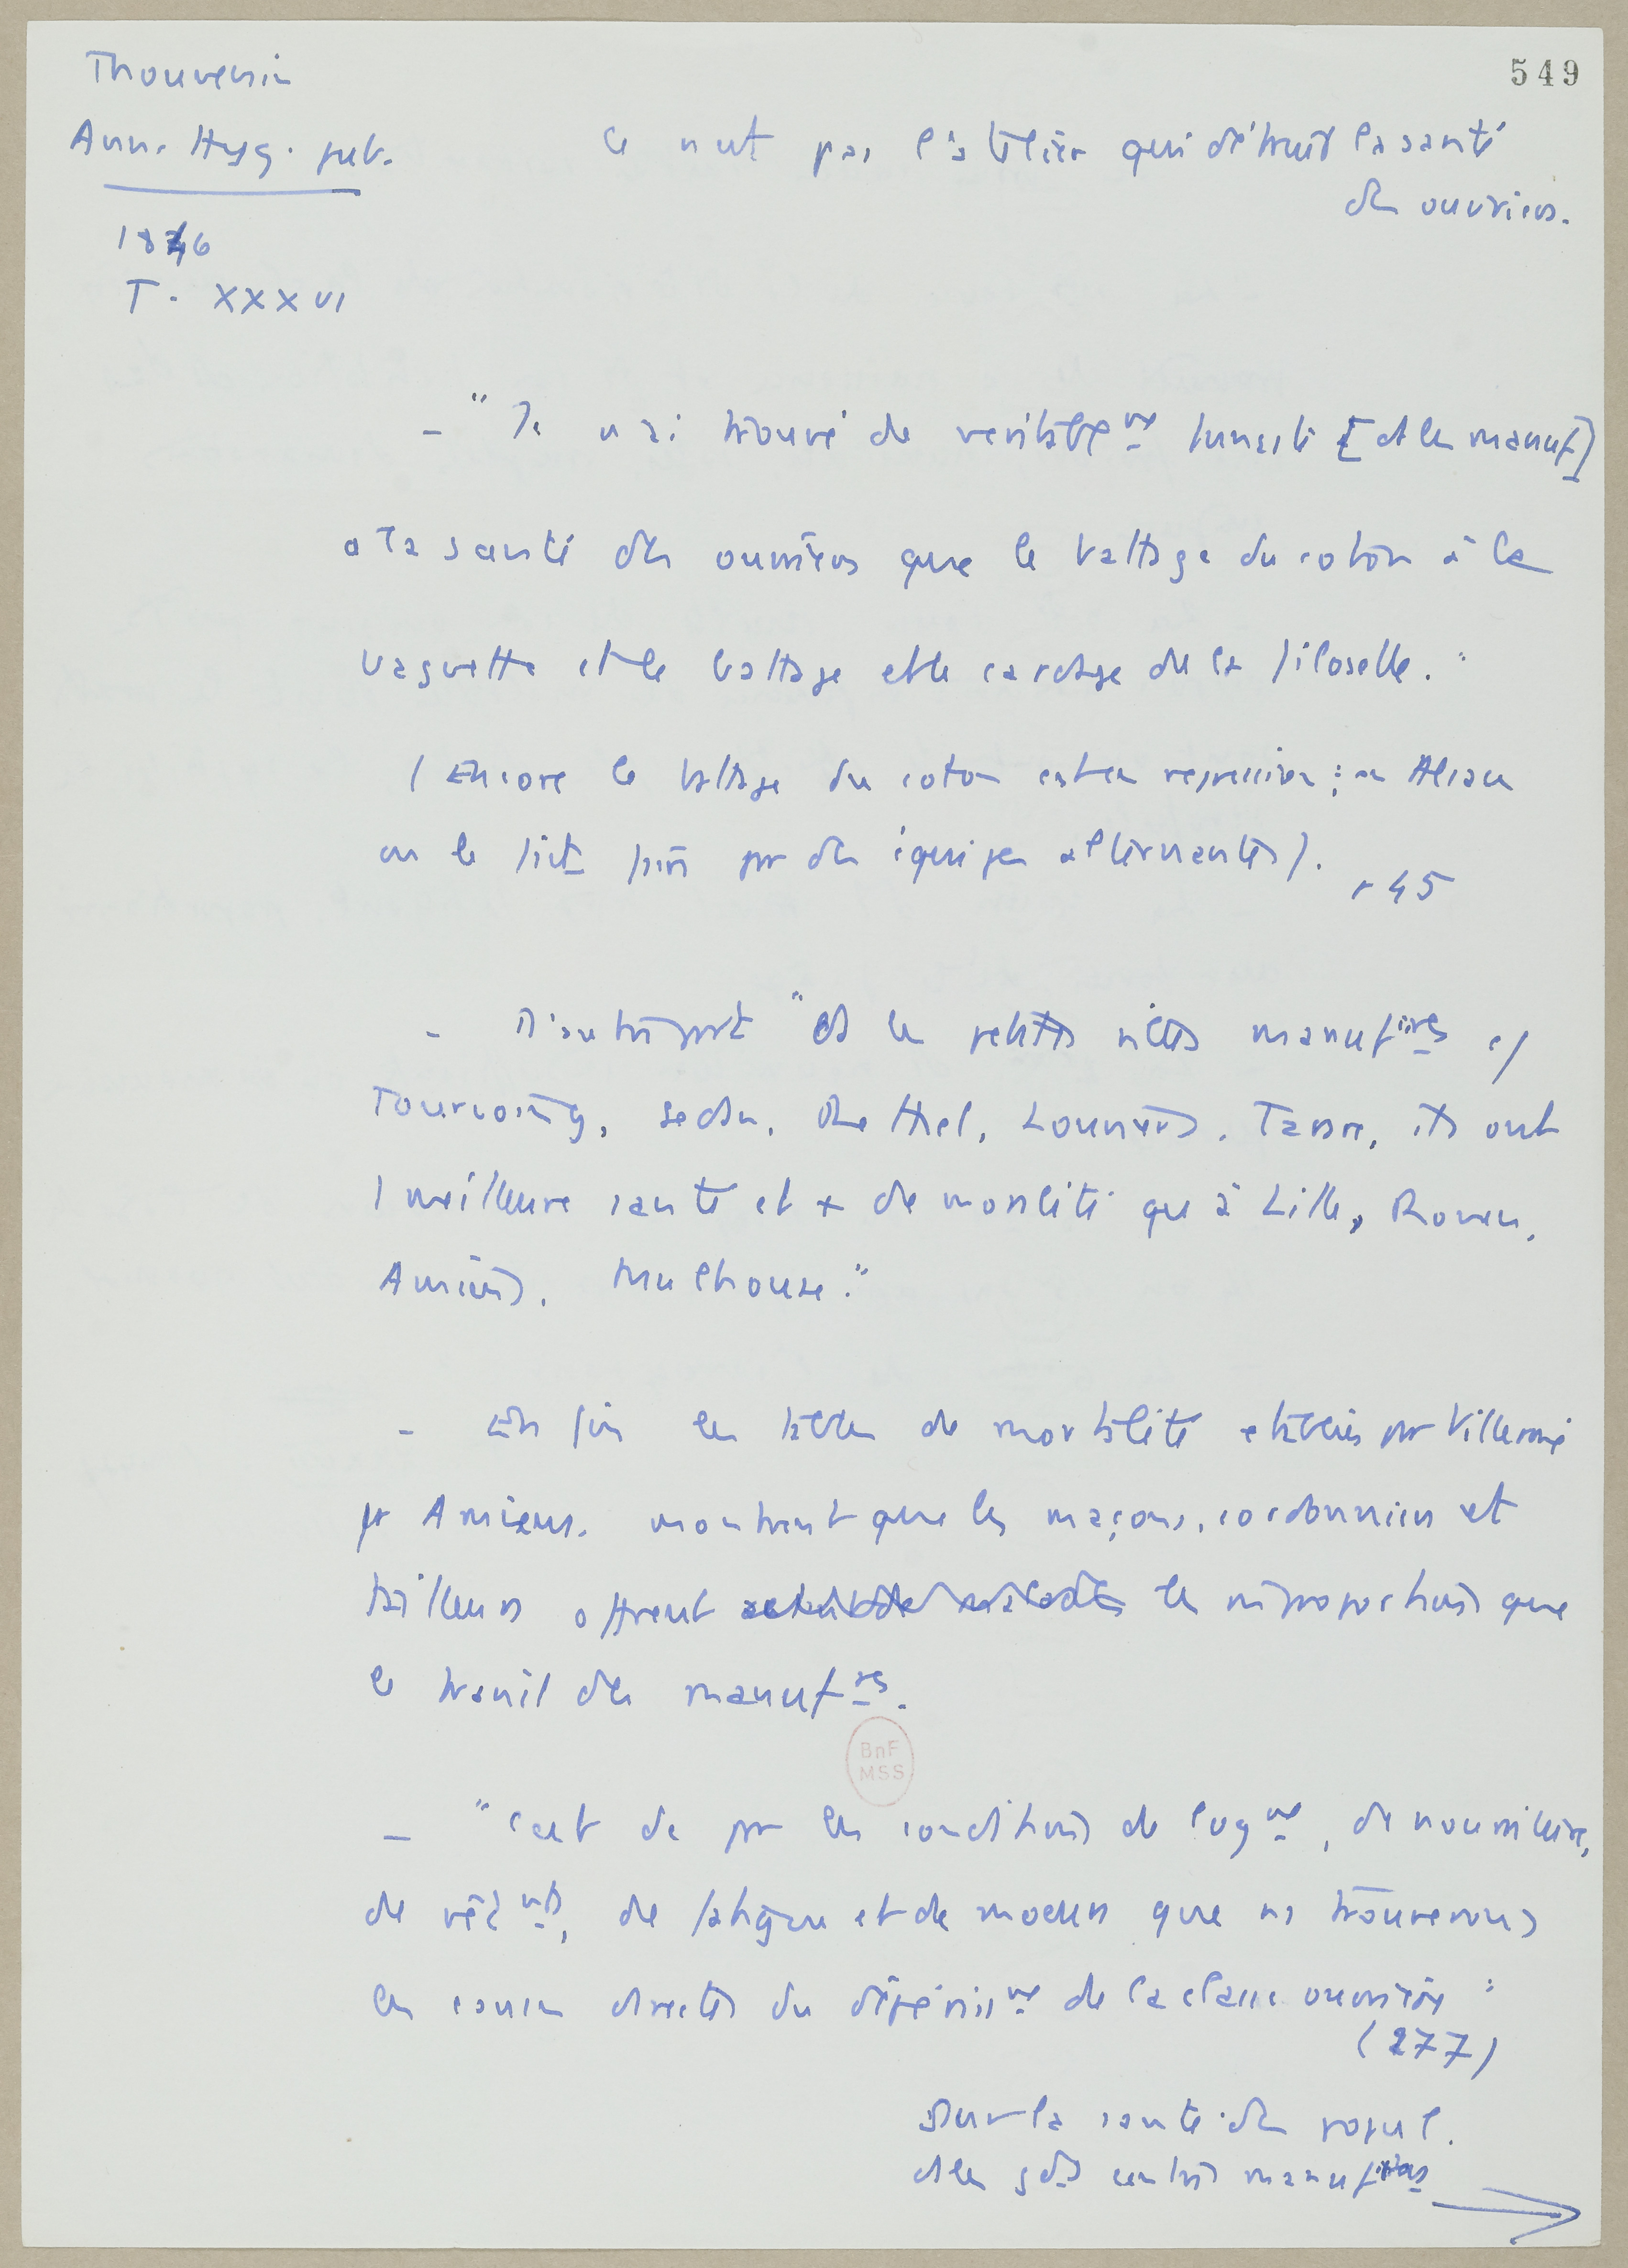 549
Thouvenin
Ann. Hyg. pub.
1846
T. XXXVI
Ce n'est pas l'atelier qui détruit la santé
des ouvriers.
– "Je n'ai trouvé de véritablemt funeste [ds les manuf]
à la santé des ouvriers que le battage du coton à la
baguette et le battage et le cardage de la filoselle."
(Encore le battage du coton est en régression ; en Alsace
on le fait faire par des équipes alternantes). p 45
– D'autre part "ds les petites villes manufires cf
Tourcoing, Sedan, Rethel, Louviers, Tarare, ils ont
1 meilleure santé et + de moralité qu'à Lille, Rouen,
Amiens, Mulhouse."
– Enfin les tables de mortalité établies par Villermé
pr Amiens, montrent que les maçons, cordonniers et
tailleurs offrent les m̂ proportions que
le travail des manufres.
– "C'est dc par les conditions de logmt, de nourriture,
de vêtmts, de fatigue et de moeurs que ns trouverons
les causes directes du dépérissmt de la classe ouvrière"
(277)
Sur la santé des popul.
ds les gds centres manufres